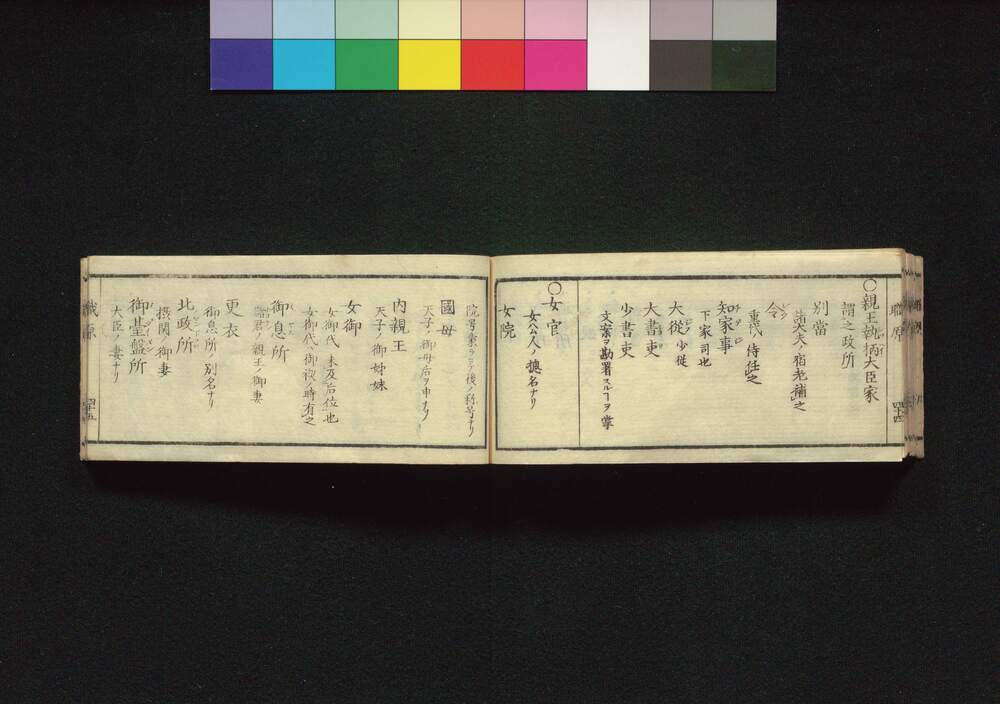 〇親王執柄大臣家
謂之政所
別當
諸大夫ノ宿老補之
令
重代ノ侍任之
知家事
下家司也
大從 少從
大書吏
少書吏
文案ヲ勘署スルヿヲ掌
〇女官
女公人ノ摠名ナリ
女院
院号ヲ蒙ラシ後ノ称号ナリ
國母
天子ノ御母后ヲ申ナリ
内親王
天子ノ御姉妹
女御
女御代 未及后位也
女御代ハ御禊ノ時有之
御息所
親王ノ御妻
更衣
御息所ノ別名ナリ
北政所
摂関ノ御妻
御臺盤所
大臣ノ妻ナリ
職原
四十五